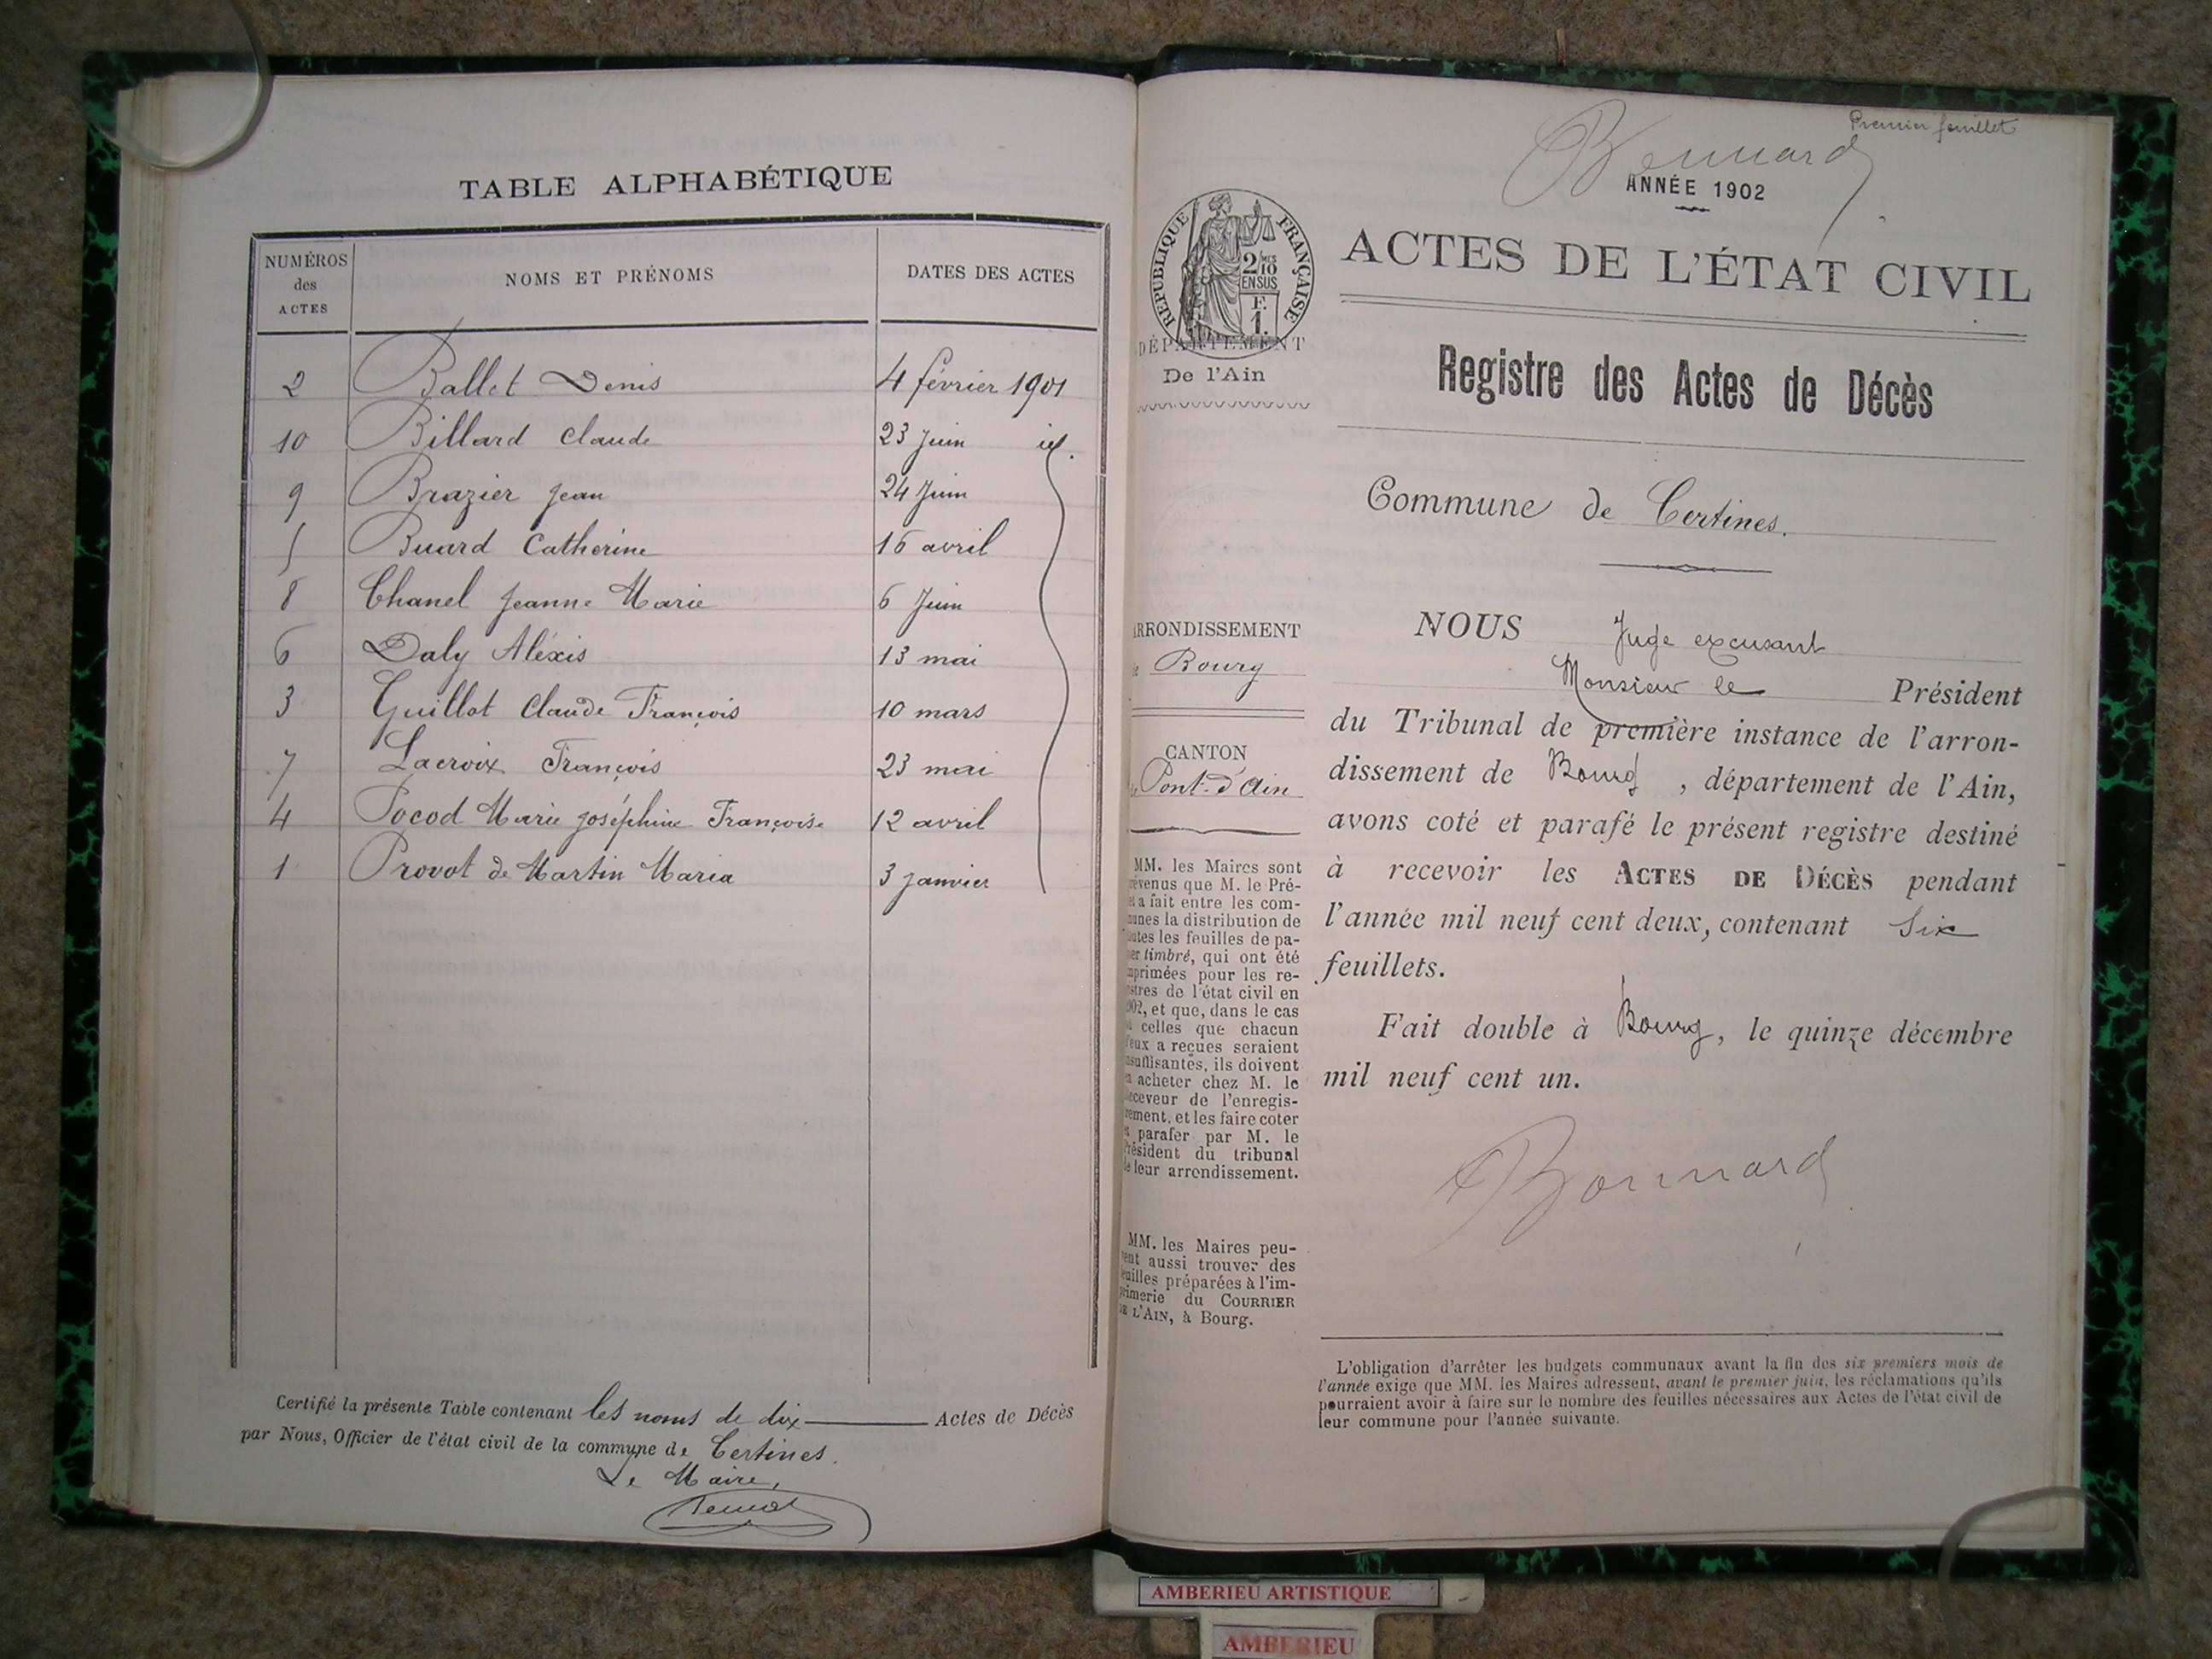 TABLE ALPHABÉTIQUE
NUMÉROS des ACTES NOMS ET PRÉNOMS DATES DES ACTES
2 Ballet Denis 4 février 1901
10 Billard Claude 23 Juin id.
9 Brazier Jean 24 Juin
5 Buard Catherine 16 avril
8 Chanel Jeanne Marie 6 Juin
6 Daly Aléxis 13 mai
3 Guillot Claude François 10 mars
7 Lacroix François 23 mai
4 Pocod Marie Joséphine Françoise 12 avril
1 Provot de Martin Maria 3 Janvier
Certifié la présente Table contenant les noms de dix Actes de Décès
par Nous, Officier de l'état civil de la commune de Certines.
Le Maire,
Premier feuillet
Bonnard
ANNÉE 1902
RÉPUBLIQUE FRANÇAISE
2/10 MES
EN SUS
F.
1.
ACTES DE L'ÉTAT CIVIL
DÉPARTEMENT
De l'Ain
Registre des Actes de Décès
Commune de Certines.
ARRONDISSEMENT
Bourg
CANTON
Pont-d'Ain
MM. les Maires sont
prévenus que M. le Pré-
fet a fait entre les com-
munes la distribution de
toutes les feuilles de pa-
pier timbré, qui ont été
imprimées pour les re-
gistres de l'état civil en
1902, et que, dans le cas
où celles que chacun
d'eux a reçues seraient
insuffisantes, ils doivent
en acheter chez M. le
receveur de l'enregis-
trement, et les faire coter
et parafer par M. le
Président du tribunal
de leur arrondissement.
MM. les Maires peu-
vent aussi trouver des
feuilles préparées à l'im-
primerie du COURRIER
DE L'AIN, à Bourg.
NOUS Juge excusant
Monsieur le Président
du Tribunal de première instance de l'arron-
dissement de Bourg, département de l'Ain,
avons coté et parafé le présent registre destiné
à recevoir les ACTES DE DÉCÈS pendant
l'année mil neuf cent deux, contenant Six
feuillets.
Fait double à Bourg, le quinze décembre
mil neuf cent un.
Bonnard
L'obligation d'arrêter les budgets communaux avant la fin des six premiers mois de
l'année exige que MM. les Maires adressent, avant le premier juin, les réclamations qu'ils
pourraient avoir à faire sur le nombre des feuilles nécessaires aux Actes de l'état civil de
leur commune pour l'année suivante.
AMBERIEU ARTISTIQUE
AMBERIEU